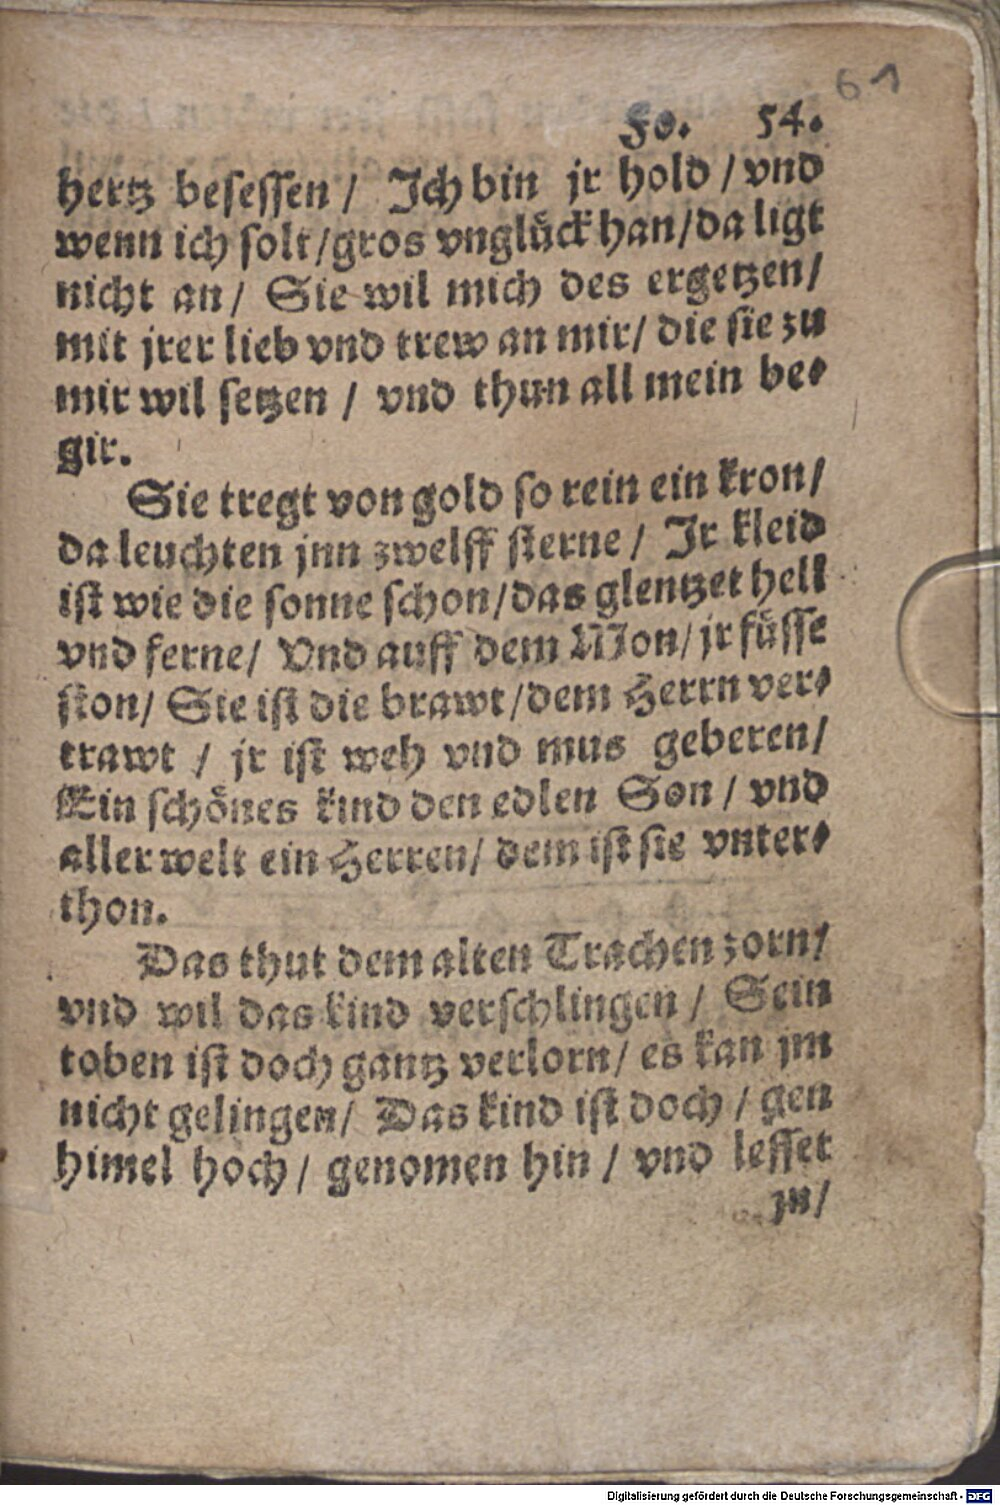 61
Fo. 54.
hertz besessen / Ich bin jr hold / vnd
wenn ich solt / gros vnglück han / da ligt
nicht an / Sie wil mich des ergetzen /
mit jrer lieb vnd trew an mir / die sie zu
mir wil setzen / vnd thun all mein be⸗
gir.
Sie tregt von gold so rein ein kron /
da leuchten jnn zwelff sterne / Ir kleid
ist wie die sonne schon / das glentzet hell
vnd ferne / Vnd auff dem Mon / jr füsse
ston / Sie ist die brawt / dem Herrn ver⸗
trawt / jr ist weh vnd mus geberen /
Ein schönes kind den edlen Son / vnd
aller welt ein Herren / dem ist sie vnter⸗
thon.
Das thut dem alten Trachen zorn /
vnd wil das kind verschlingen / Sein
toben ist doch gantz verlorn / es kan jm
nicht gelingen / Das kind ist doch / gen
himel hoch / genomen hin / vnd lesset
jn /
Digitalisierung gefördert durch die Deutsche Forschungsgemeinschaft - DFG